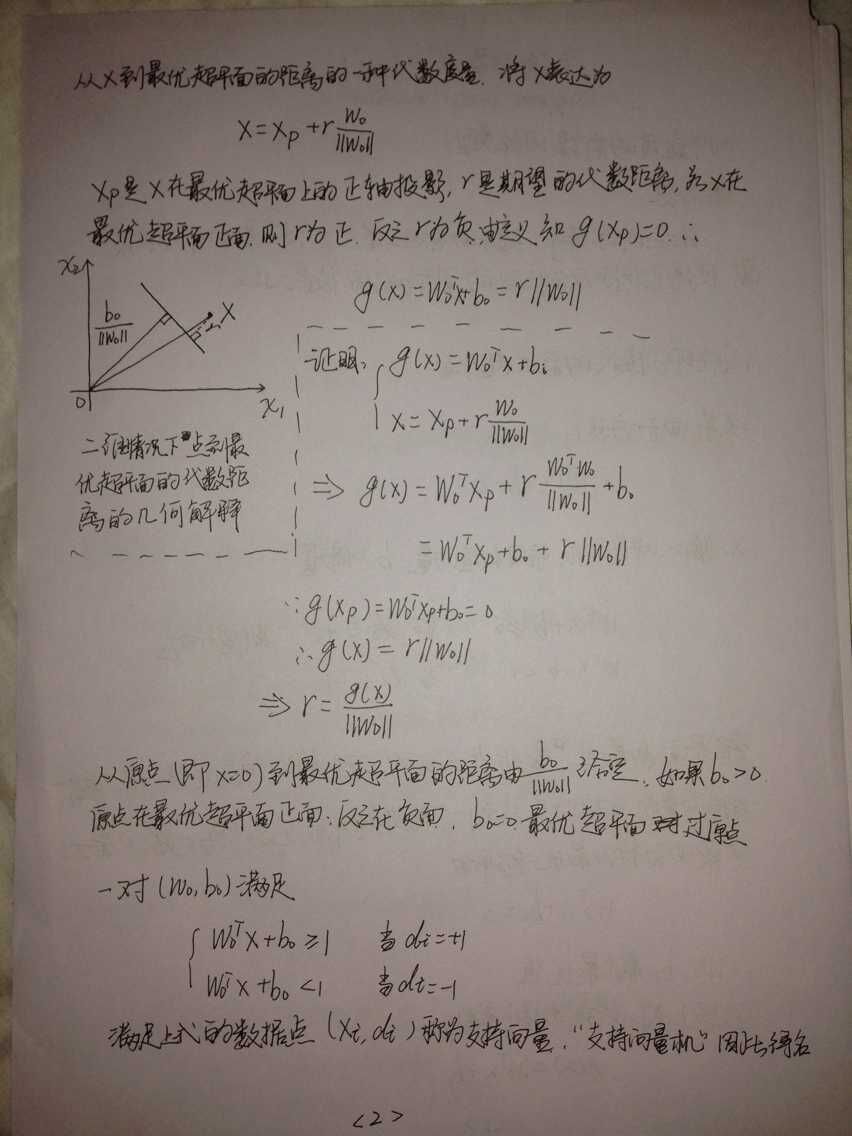 从X到最优超平面的距离的一种代数度量. 将X表达为
X = Xp + r W₀/||W₀||
Xp是X在最优超平面上的正轴投影, r是期望的代数距离, 若X在
最优超平面正面. 则r为正. 反之r为负, 由定义知 g(Xp)=0. ∴
g(X) = W₀ᵀX+b₀ = r||W₀||
x₂
b₀/||W₀||
X
0
x₁
二维情况下点到最
优超平面的代数距
离的几何解释
证明:
g(X) = W₀ᵀX+b₀
X = Xp + r W₀/||W₀||
⇒ g(X) = W₀ᵀXp + r W₀ᵀW₀/||W₀|| + b₀
= W₀ᵀXp + b₀ + r||W₀||
∵ g(Xp) = W₀ᵀXp+b₀ = 0
∴ g(X) = r||W₀||
⇒ r = g(X)/||W₀||
从原点(即X=0)到最优超平面的距离由 b₀/||W₀|| 给定, 如果b₀>0.
原点在最优超平面正面; 反之在负面. b₀=0 最优超平面过原点
一对(W₀,b₀)满足
W₀ᵀX+b₀ ≥ 1 当di=+1
W₀ᵀX+b₀ < 1 当di=-1
满足上式的数据点 (Xi, di) 称为支持向量, "支持向量机" 因此得名
<2>